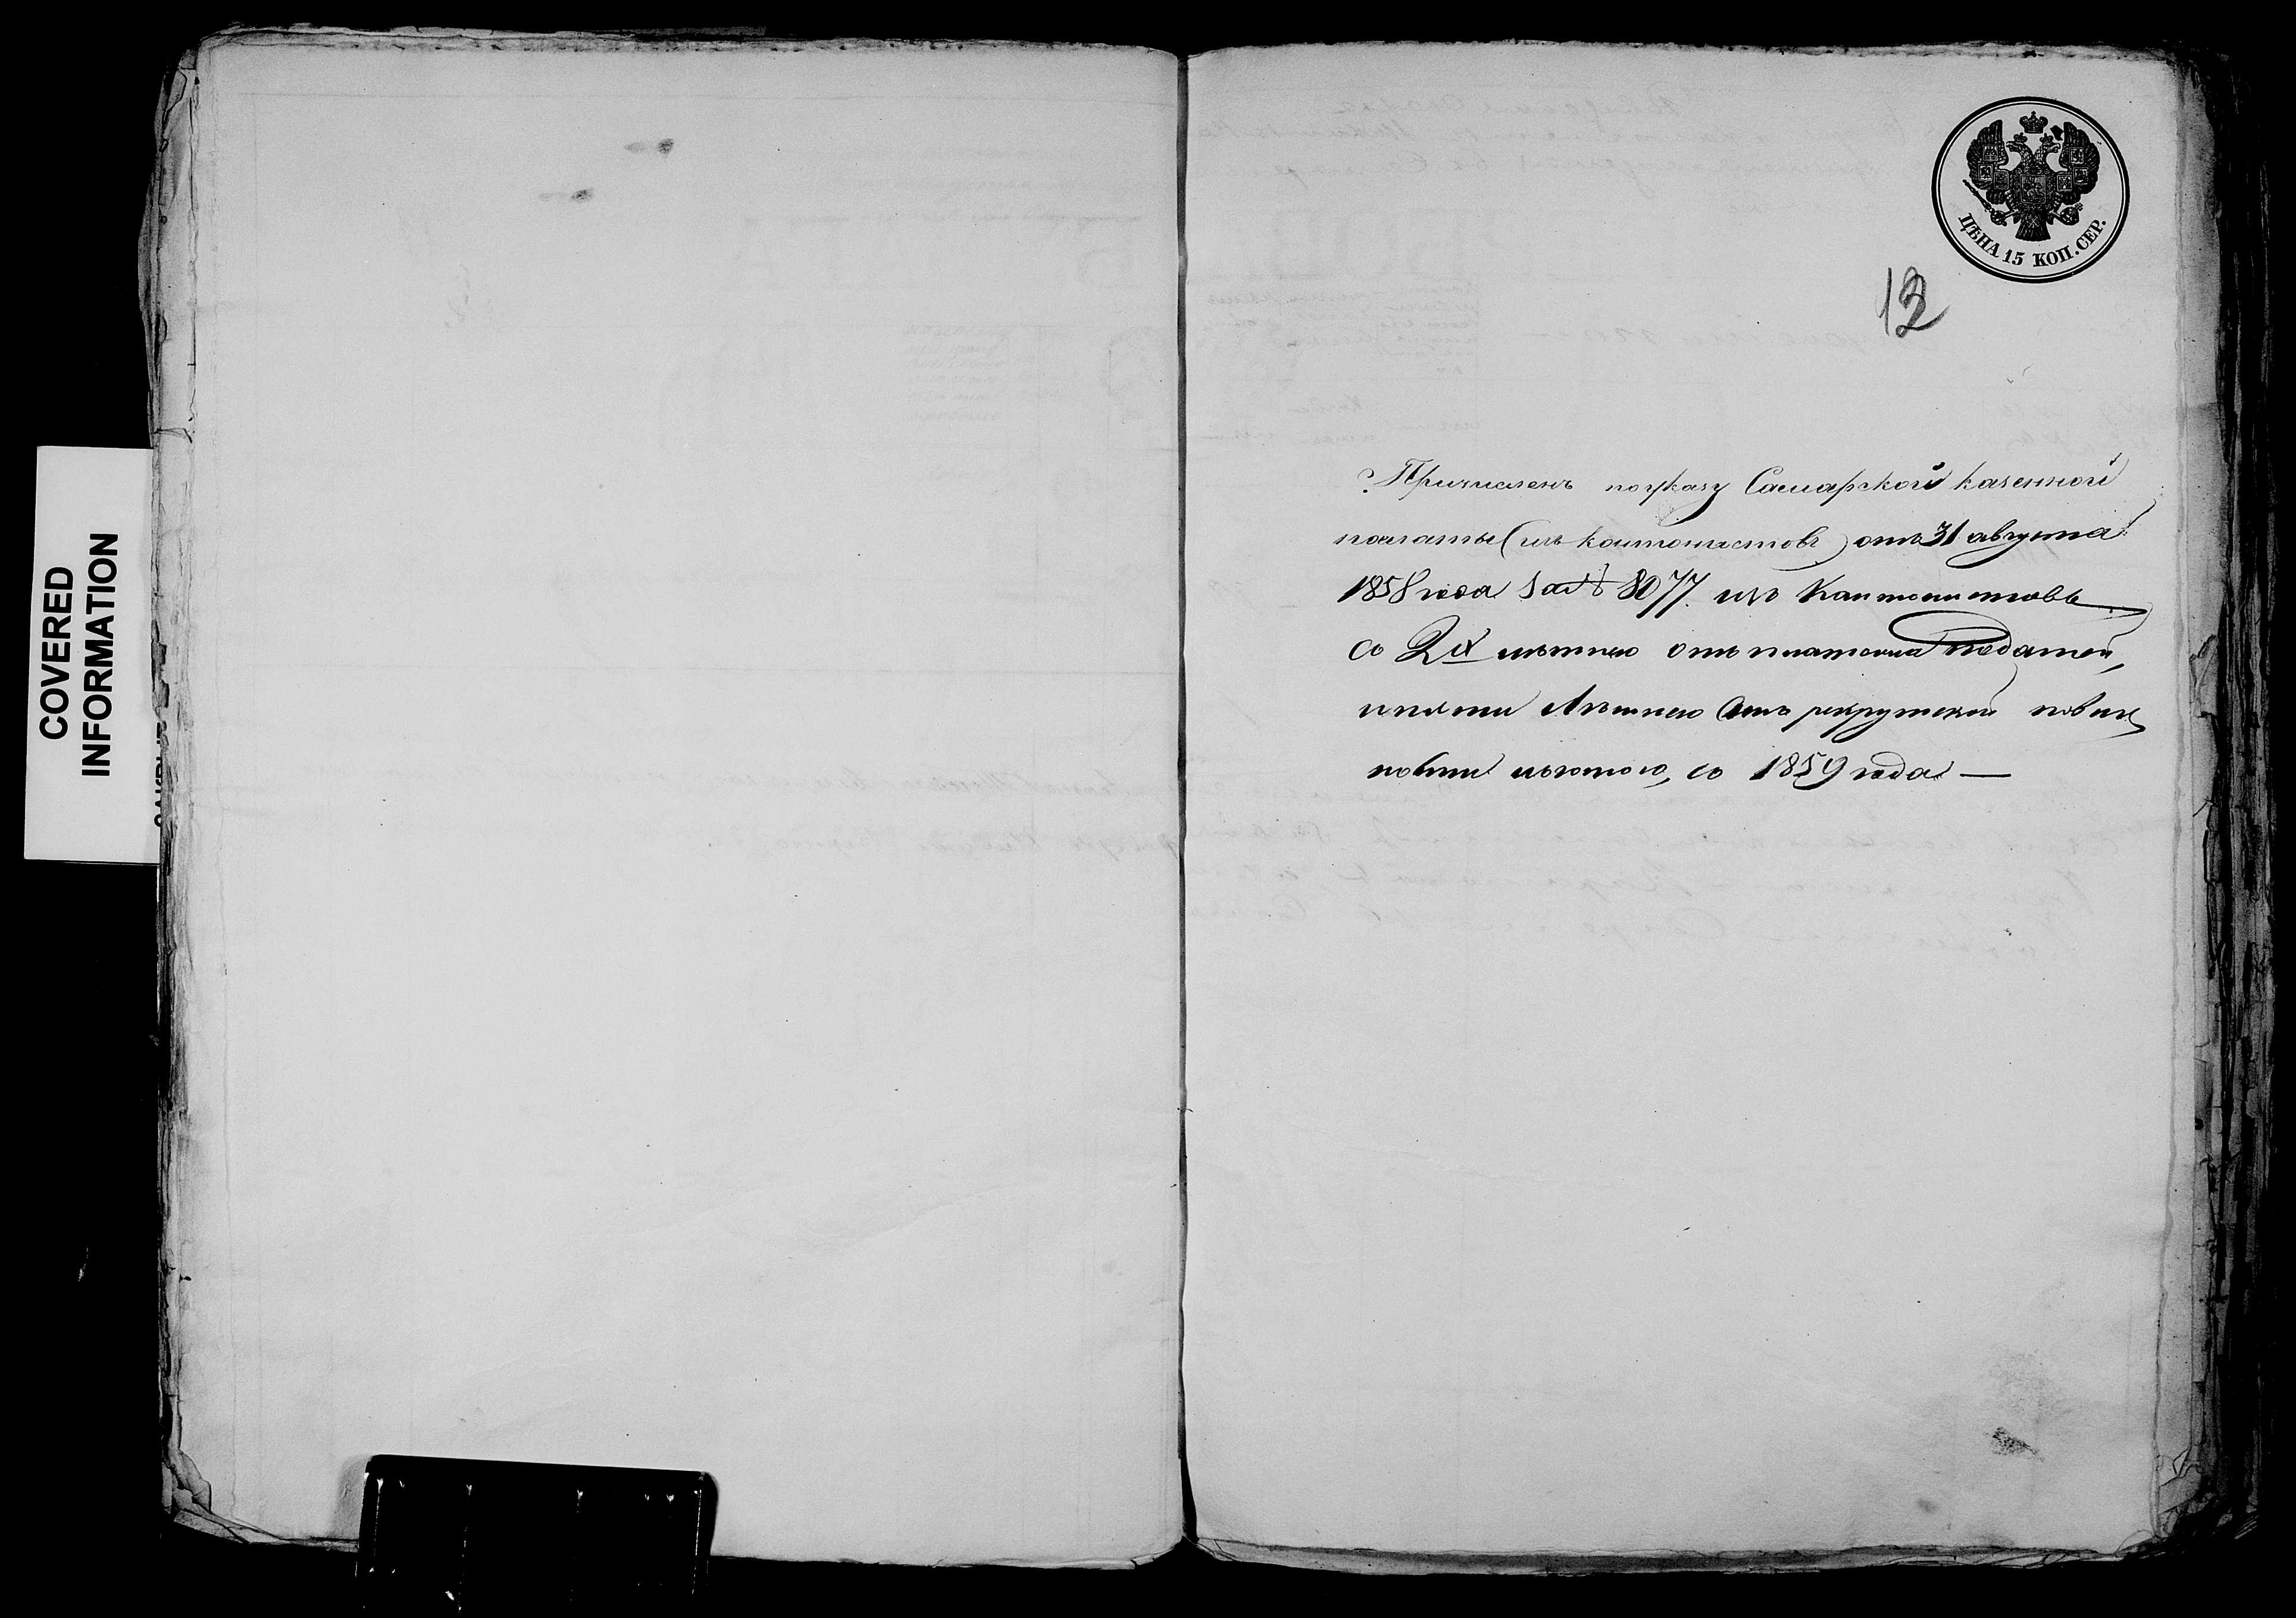 COVERED
INFORMATION
ЦѢНА 15 КОП. СЕР.
13
Причисленъ поуказу Самарской казенной
палаты (изъ кантонистовъ) отъ 31 августа
1858 года за № 8077. изъ Кантонистовъ
со 2х лѣтнею отъ платежа Податей,
и пяти Лѣтнею Отъ рекрутской повин
ности льготою, со 1859 года —